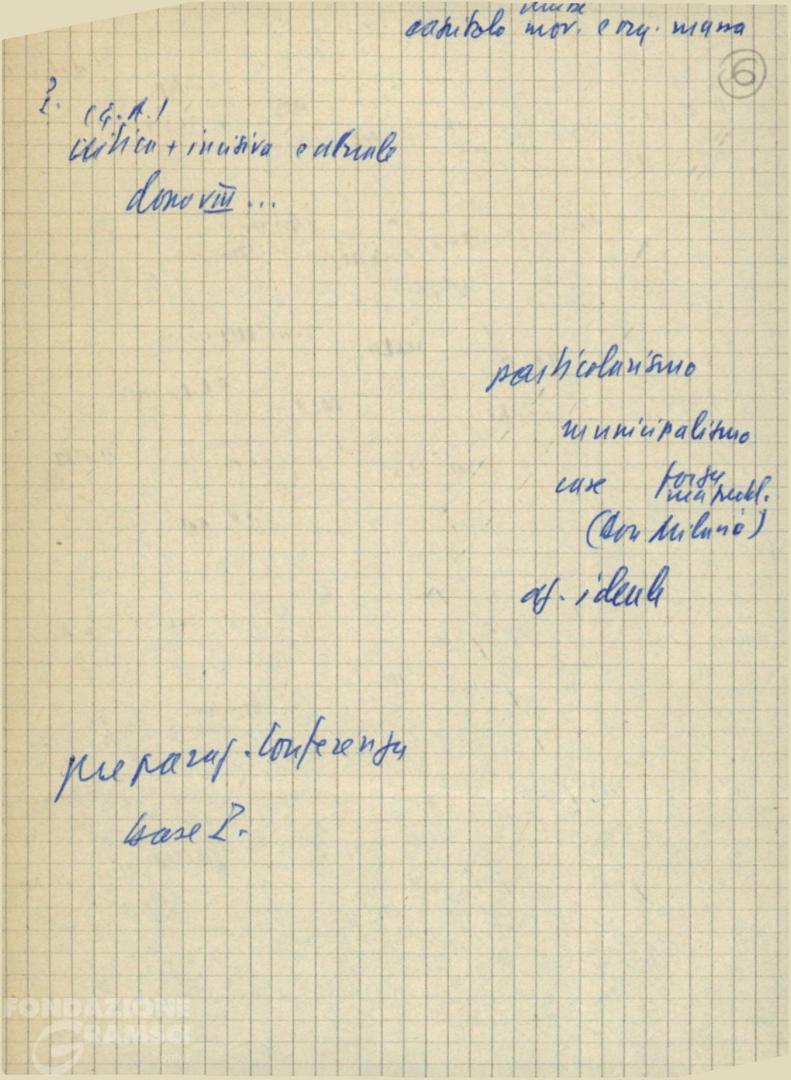 capitolo mov. e org. massa
6
critica + incisiva e attuale
dono VIII ...
particolarismo
municipalismo
case
(Don Milani)
preparaz. conferenza
base
FONDAZIONE
GRAMSCI